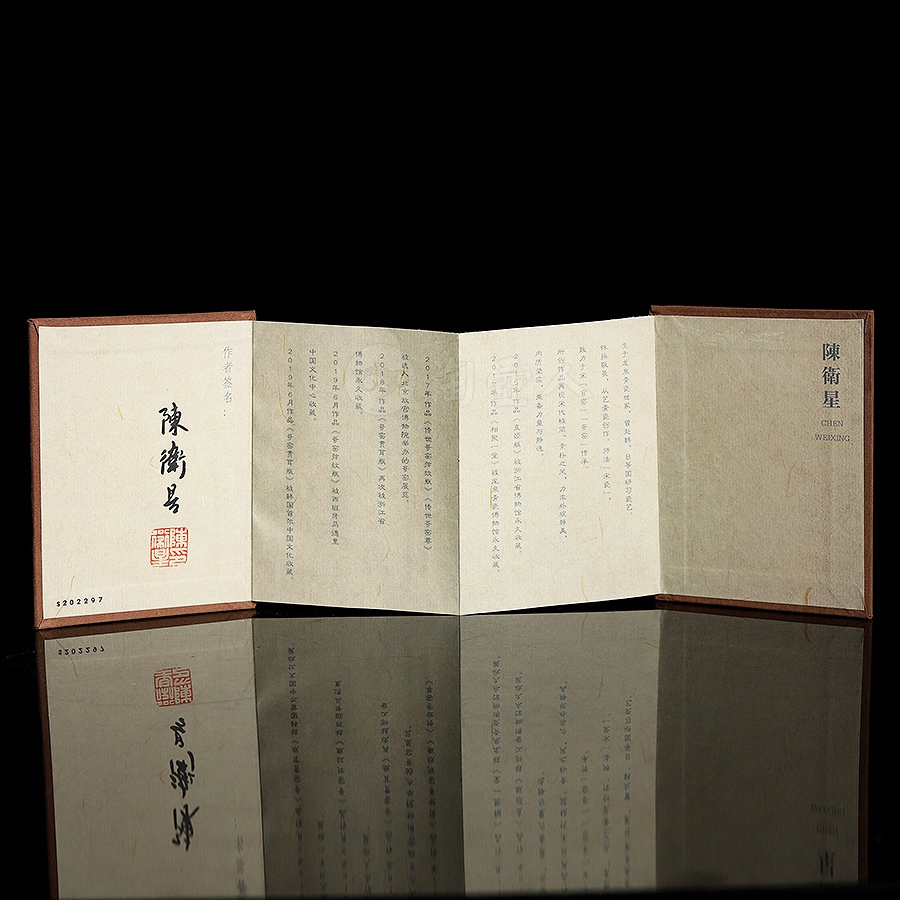 陳衛星
CHEN
WEIXING
生于龙泉青瓷世家，曾赴韩、日等国研习瓷艺。
致力于宋“官窑”“哥窑”传承，
所创作品再现宋代极简、素朴之风，力求外观静美、
内质坚实，兼备力量与静逸。
2017年作品《直颈瓶》被浙江省博物馆永久收藏。
2017年作品《相聚一堂》被龙泉青瓷博物馆永久收藏。
2017年作品《传世哥窑弦纹瓶》《传世哥窑尊》
被选入北京故宫博物院举办的哥窑展览。
2018年作品《哥窑贯耳瓶》再次被浙江省
博物馆永久收藏。
2019年6月作品《哥窑弦纹瓶》被西班牙马德里
中国文化中心收藏。
2019年6月作品《哥窑贯耳瓶》被韩国首尔中国文化收藏。
作者签名：
陳衛星
S202297